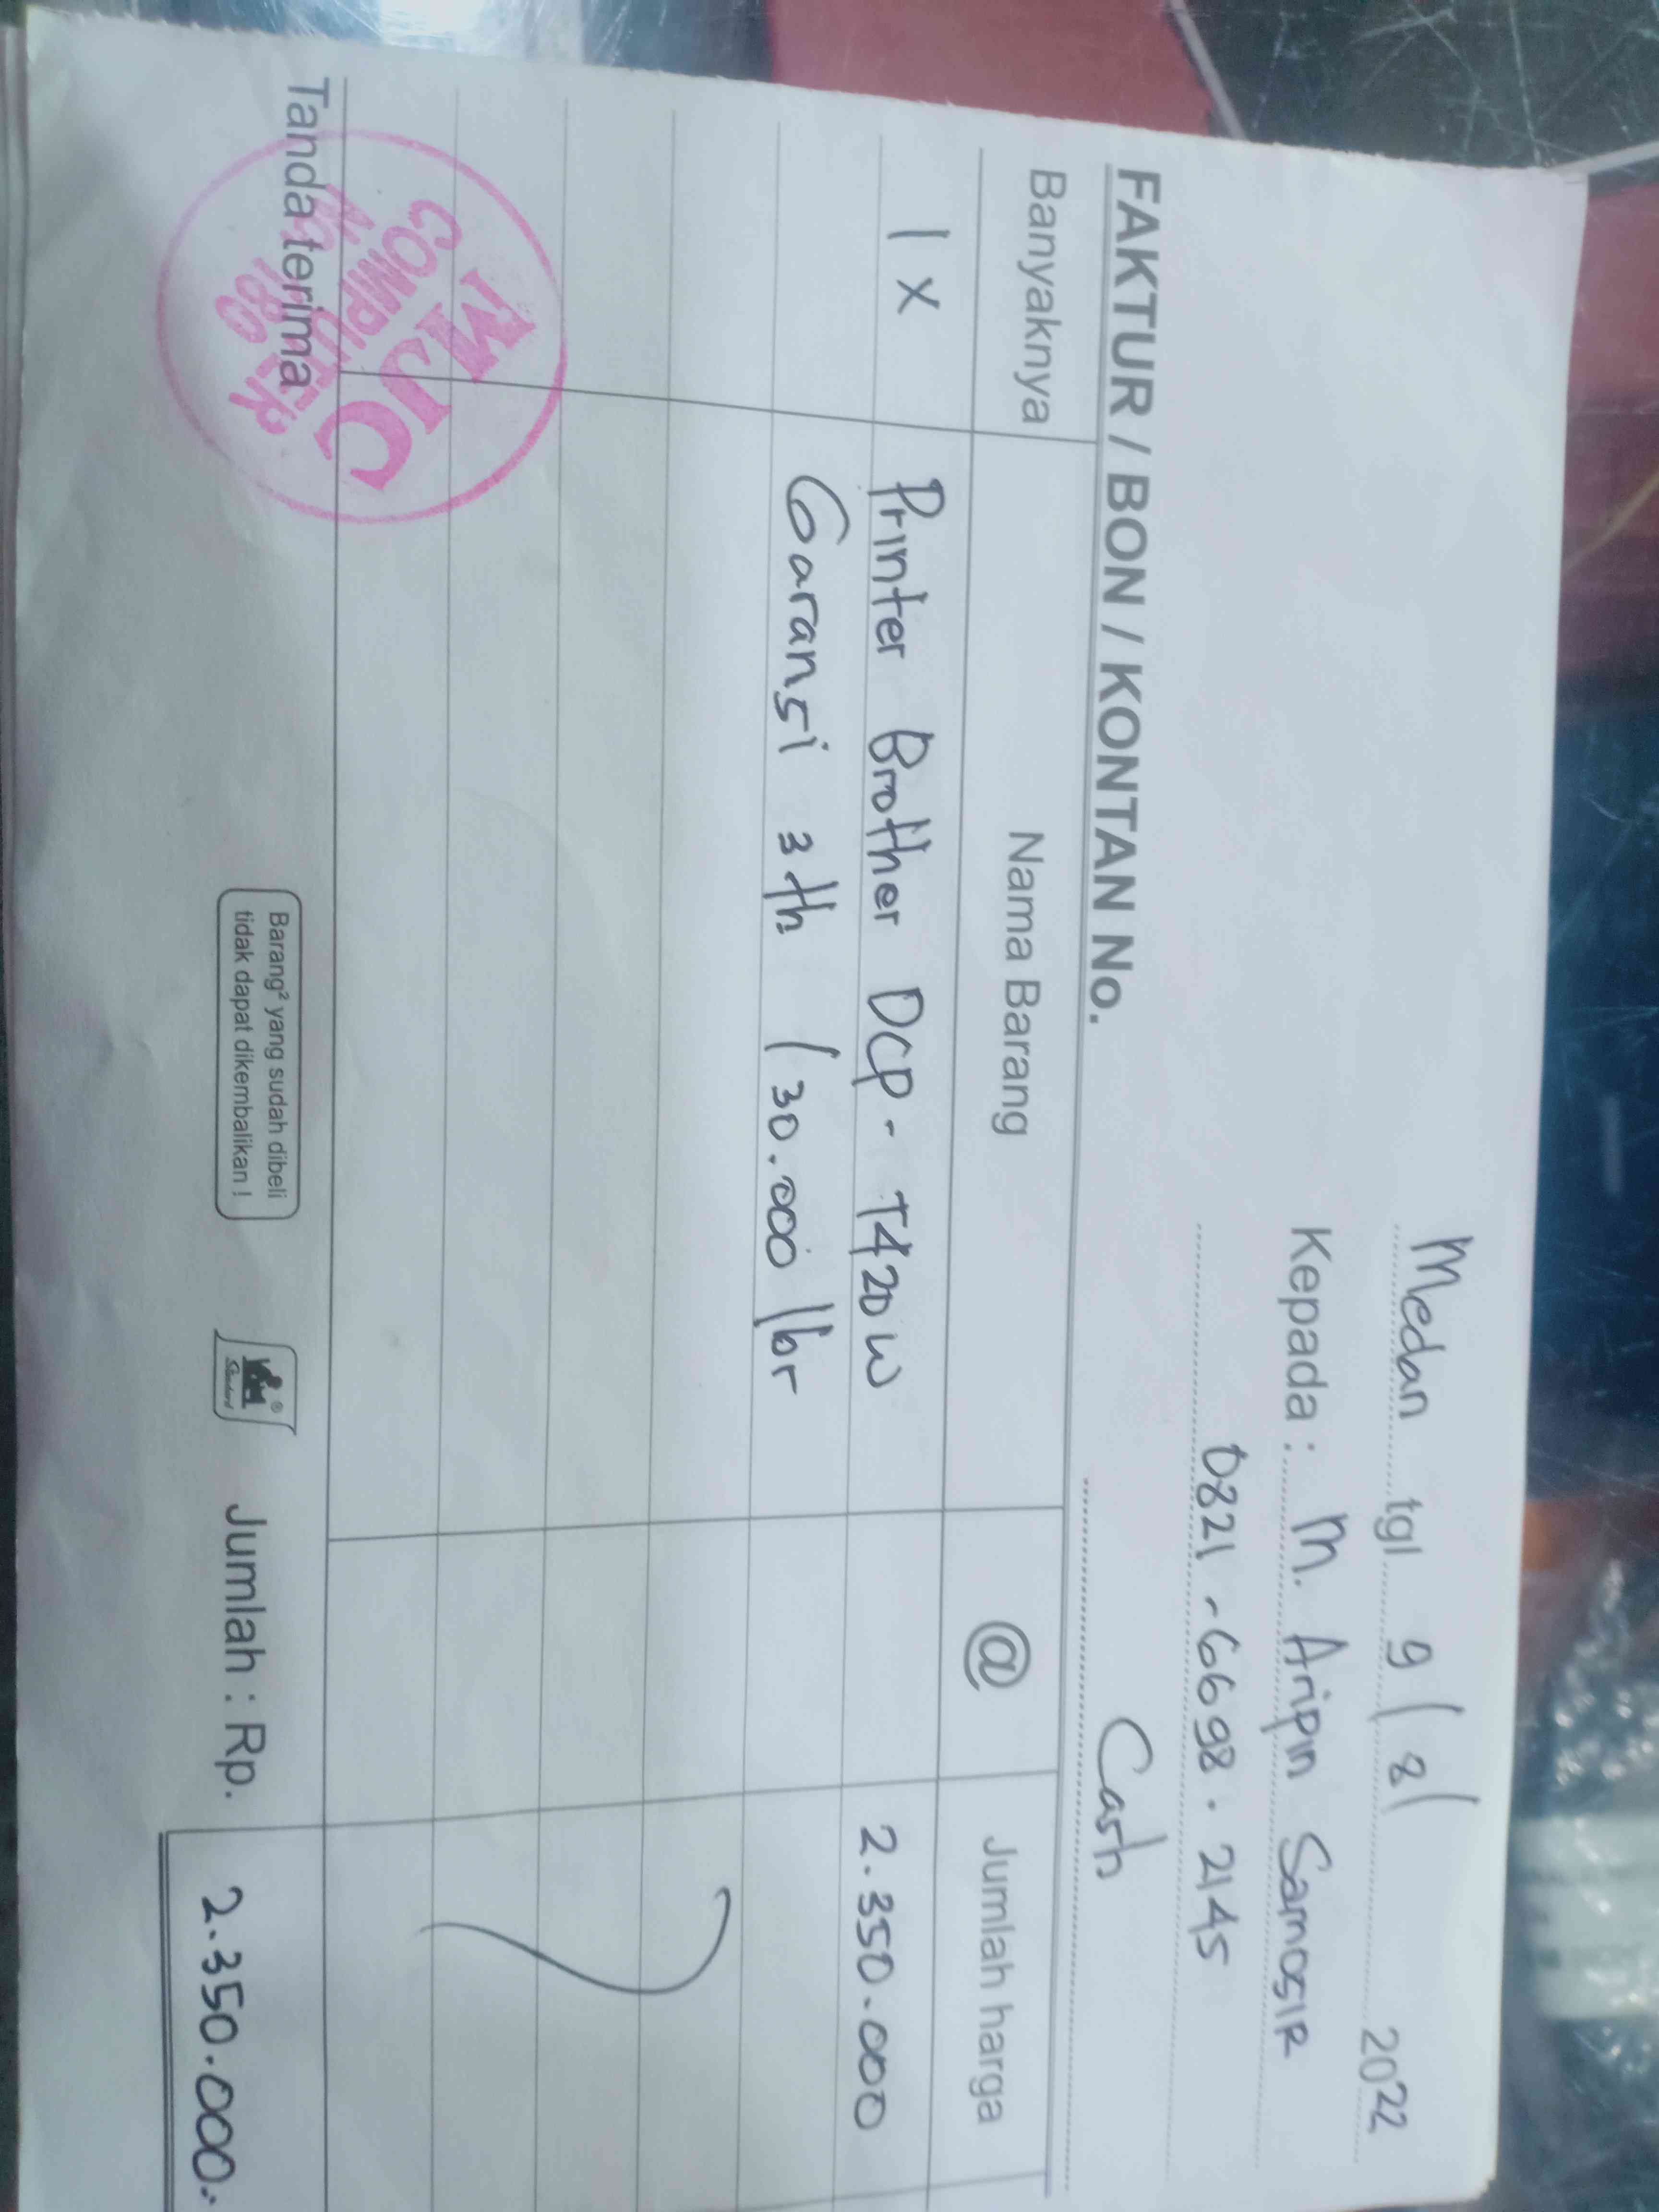 Medan tgl 9/8/2022
Kepada : M. Aripin Samosir
0821-6698.2145
Cash
FAKTUR / BON / KONTAN No.
Banyaknya Nama Barang @ Jumlah harga
1 x Printer Brother DCP-T420W 2.350.000
Garansi 3th / 30.000 lbr
MJC
COMPUTER
Tanda terima
Barang² yang sudah dibeli
tidak dapat dikembalikan !
Standard
Jumlah : Rp. 2.350.000.-